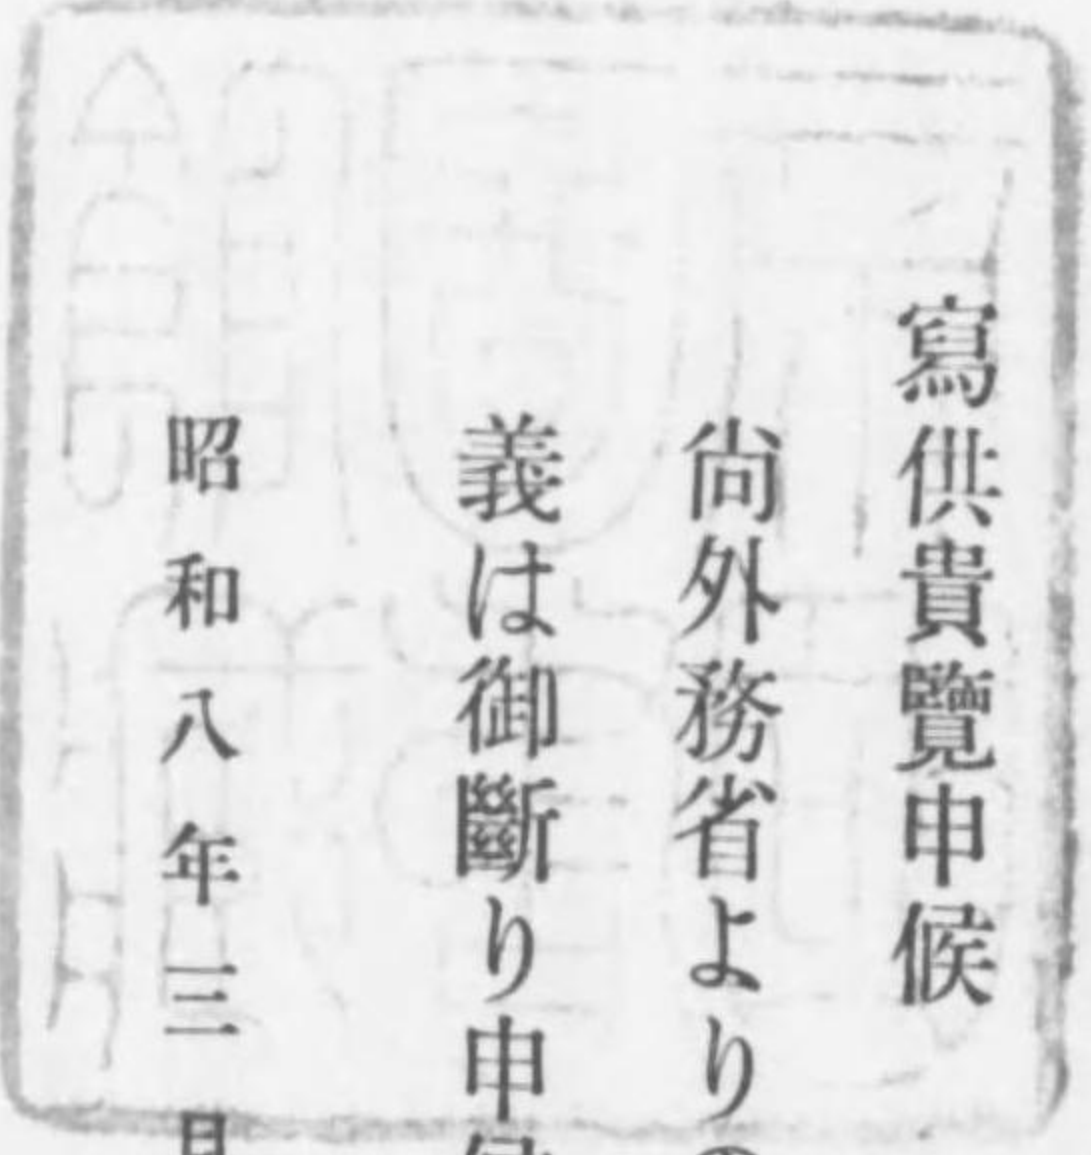 寫供貴覽申候
尙外務省よりの
義は御斷り申候
昭和八年三月